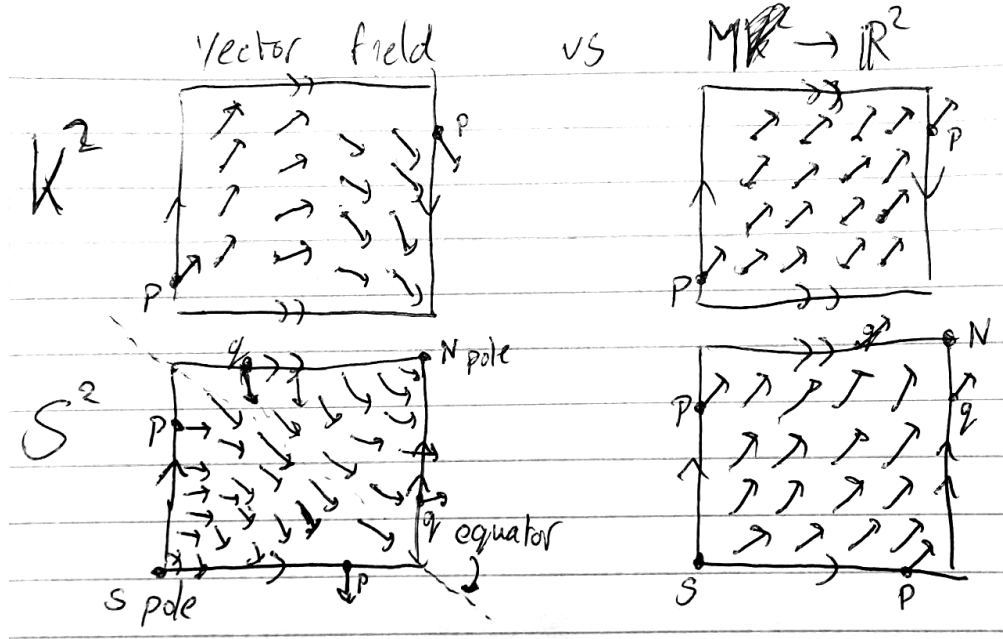 vector field vs M → ℝ²
K²
P
P
P
P
S²
q
N pole
P
q
equator
P
S pole
q
N
P
q
S
P